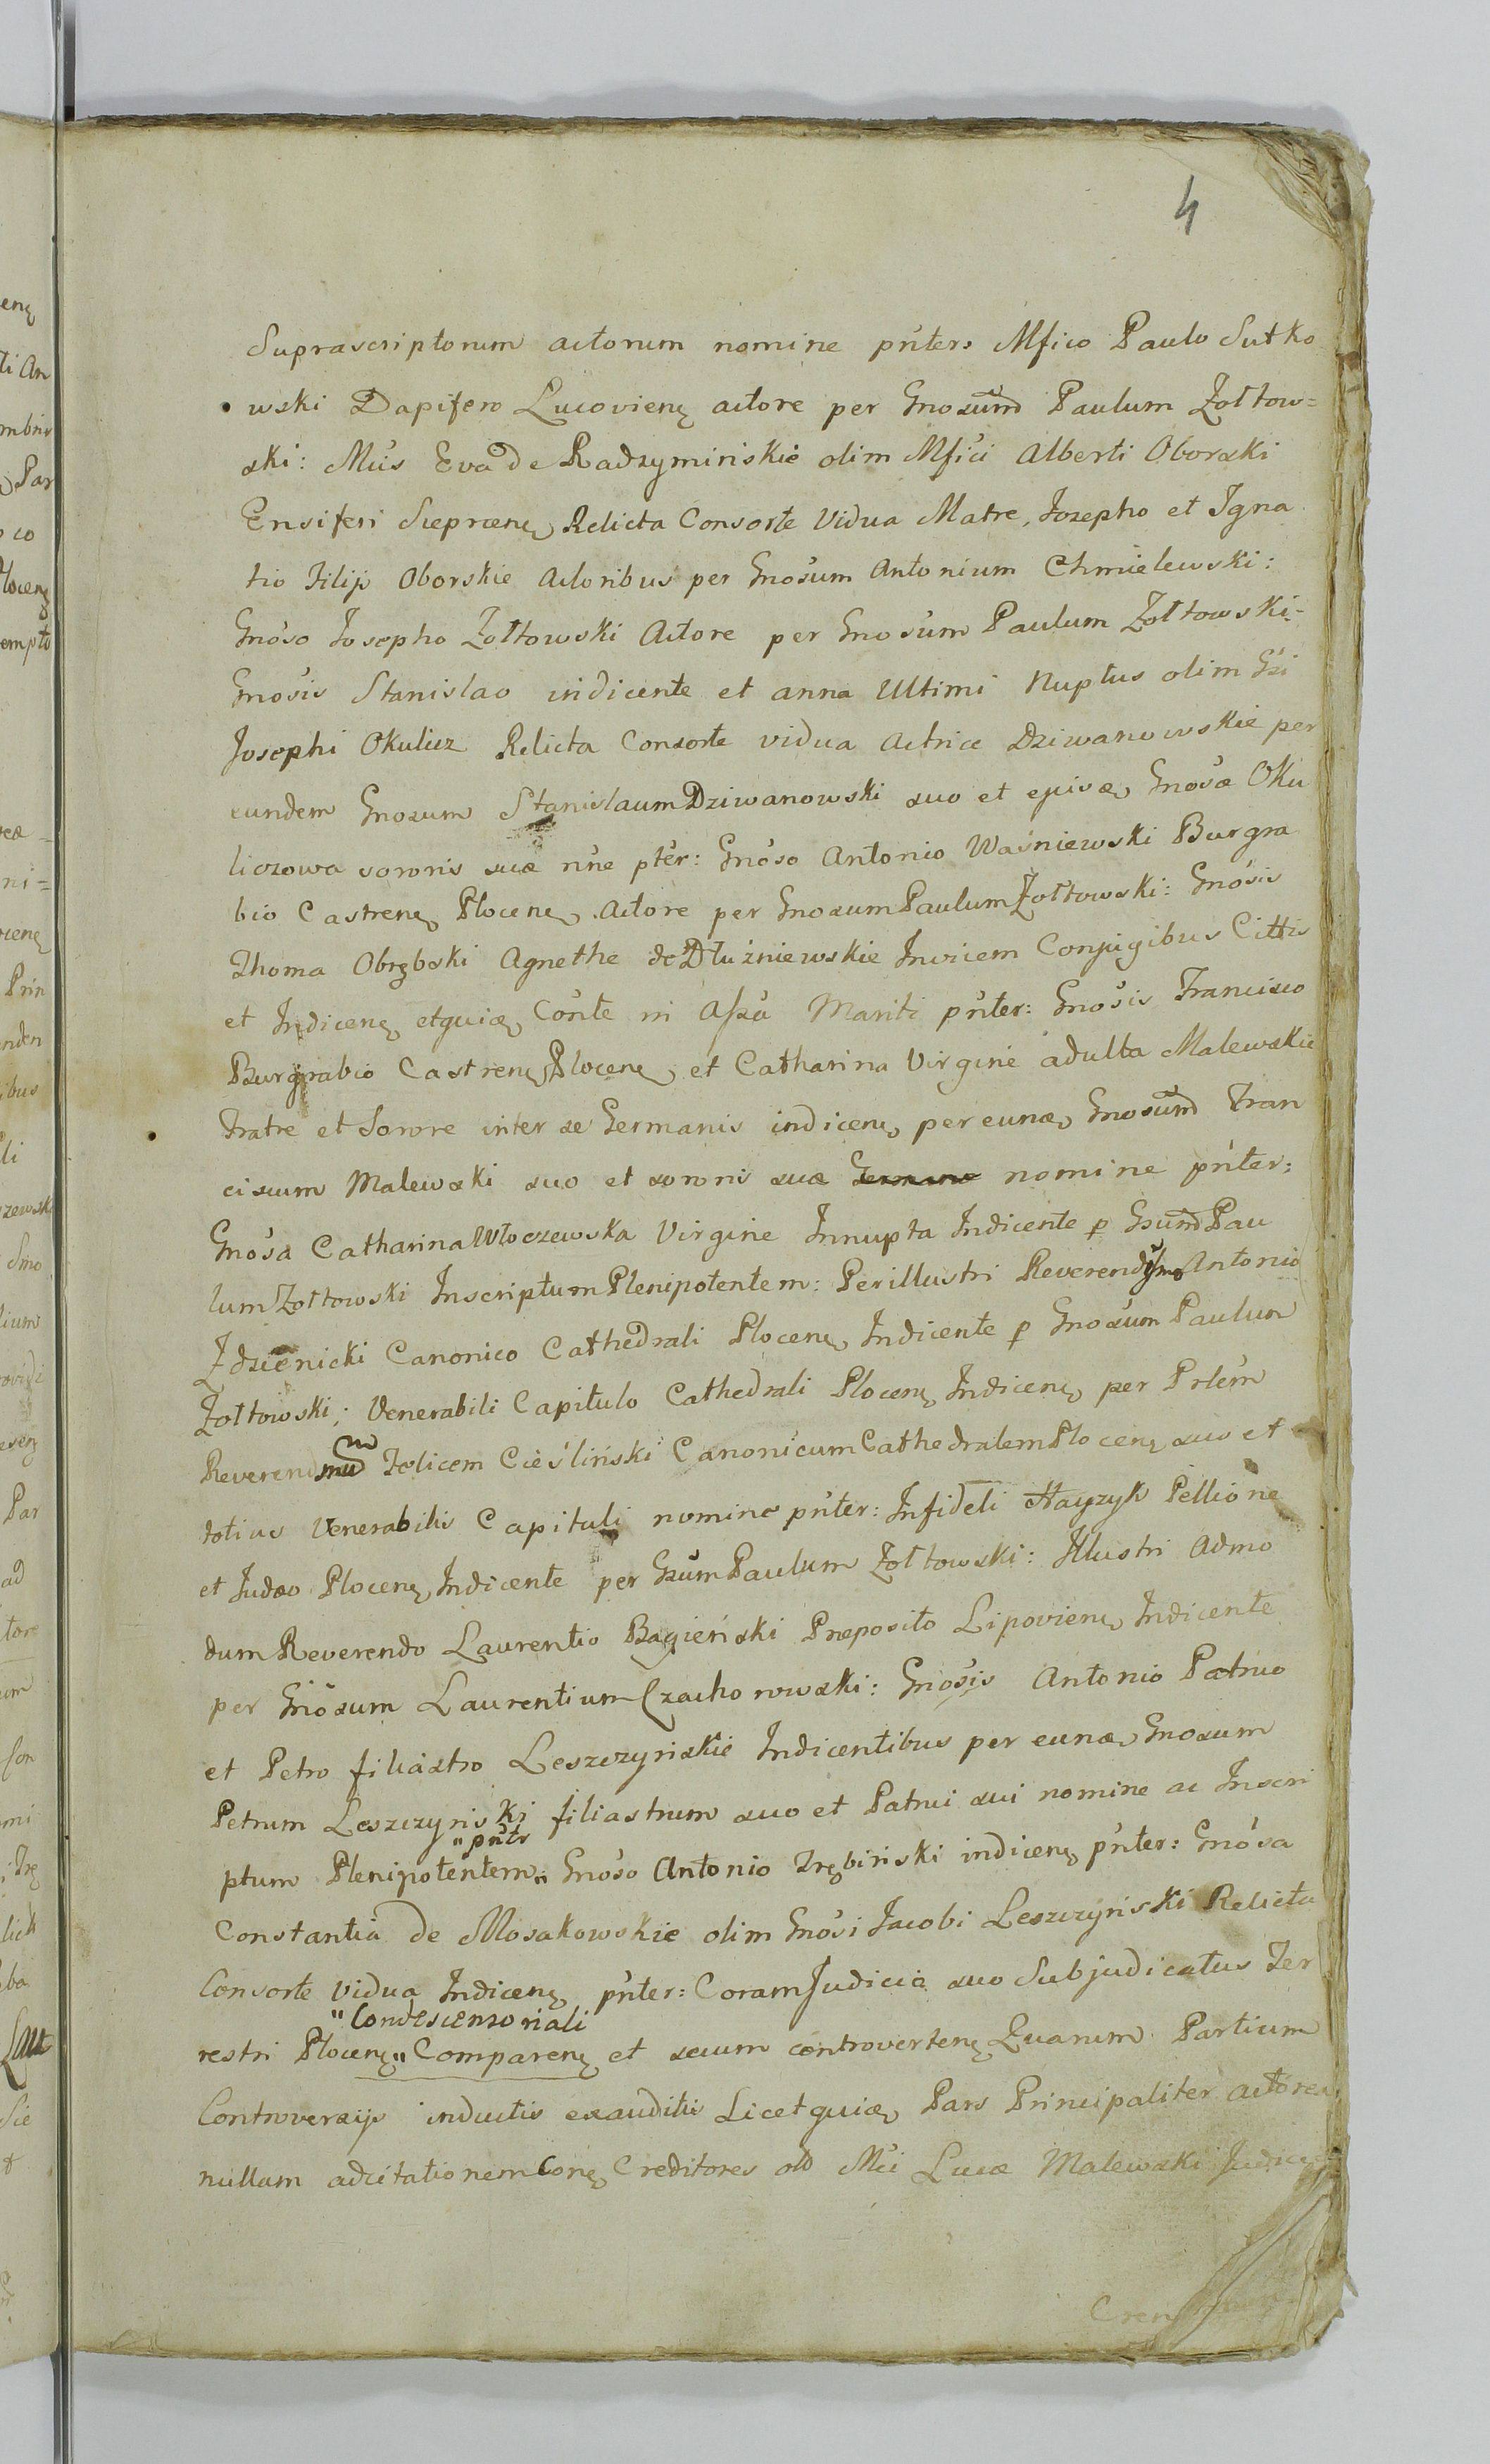 4
Suprascriptorum actorum nomine pńter: Mfico Paulo Sutko
wski Dapifero Lucovienę actore per Gnosum Paulum Zołtow=
ski: Mcis Eva de Radzyminskie olim Mfici Alberti Oborski
Ensiferi Sieprcenę Relicta Consorte Vidua Matre, Josepho et Igna
tio Filijs Oborskie Actoribus per Gnosum Antonium Chmielewski:
Gnoso Josepho Zołtowski Actore per Gnosum Paulum Zołtowski:
Gnosis Stanislao indicente et anna Ultimi Nuptus olim Gsi
Josephi Okulicz Relicta Consorte vidua Actrice Dziwanowskie per
eundem Gnosum Stanislaum Dziwanowski suo et ejusdę Gnosæ Oku
liczowa sororis suæ nńe ptér: Gnoso Antonio Waśniewski Burgra
bio Castrenę Plocenę Actore per Gnosum Paulum Zołtowski: Gnosis
Thoma Obrębski Agnethe de Dłużniewskie Invicem Conjugibus Cittis
et Indicenę Conte in Assa Mariti pńter: Gnosis Francisco
Burgrabio Castrenę Plocenę et Catharina Virgine adulta Malewskie
Fratre et Sorore inter se Germanis indicenę per Gnosum Fran
ciscum Malewski suo et sororis suæ Germano nomine pńter:
Gnosa Catharina Włoczewska Virgine Innupta Indicente p Gsum Pau
lum Zołtowski Inscriptum Plenipotentem: Perillustri Reverendismo Antonio
Zdzienicki Canonico Cathedrali Plocenę Indicente p Gnosum Paulum
Zołtowski; Venerabili Capitulo Cathedrali Plocenę Indicenę per Prlem
Reverendmum Felicem Cieśliński Canonicum Cathedralem Plocenę suo et
totius Venerabilis Capituli nomine pńter: Infideli Hayzyk Pellione
et Judæo Plocenę Indicente per Gsum Paulum Zołtowski: Illustri Admo
dum Reverendo Laurentio Bagieński Preposito Lipovienę Indicente
per Gnosum Laurentium Czachorowski: Gnosis Antonio Patruo
et Petro filiastro Leszczynskie Indicentibus per Gnosum
Petrum Leszczynski filiastrum suo et Patrui sui nomine ac Inscri
"pńtr
ptum Plenipotentem" Gnoso Antonio Trębiński indicenę pńter: Gnosa
Constantia de Mosakowskie olim Gnosi Jacobi Leszczyński Relicta
Consorte Vidua Indicenę pńter: Coram Judicio suo Subjudicatus Ter
"Condescensoriali
restri Plocenę" Comparenę et secum controvertenę Quarum Partium
Controversijs inductis exauditis Licet Pars Principaliter actorea
nullam adcitationem Conę Creditores olo Mci Lucæ Malewski Judicis